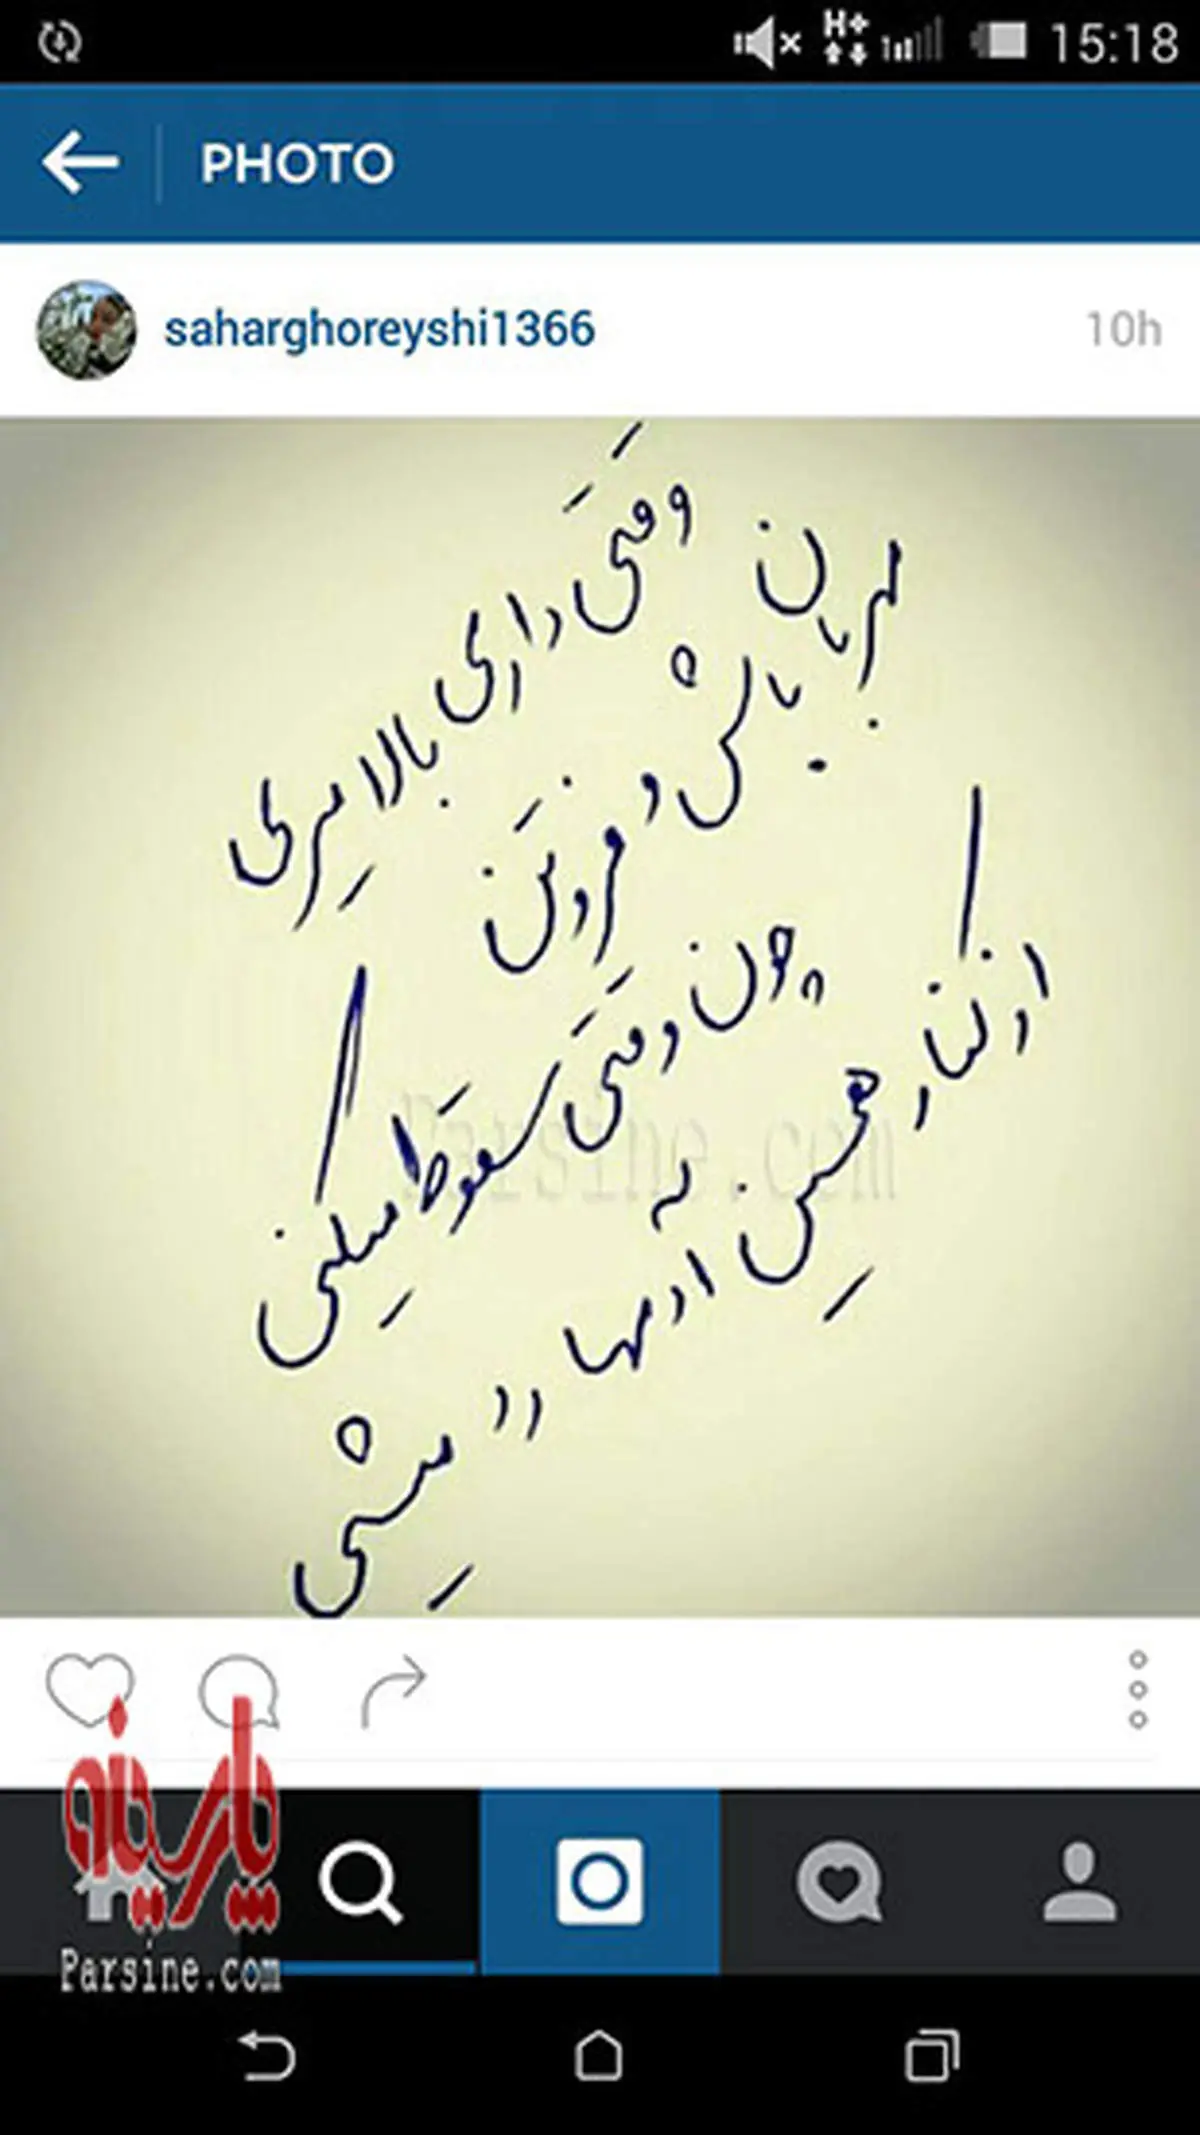 15:18
PHOTO
saharghoreyshi1366
10h
مهربان
باش و فروتن
وقتی داری بالا میری
چون وقتی سقوط میکنی
از کنار همین آدمها رد میشی
Parsine.com
پارسینه
Parsine.com